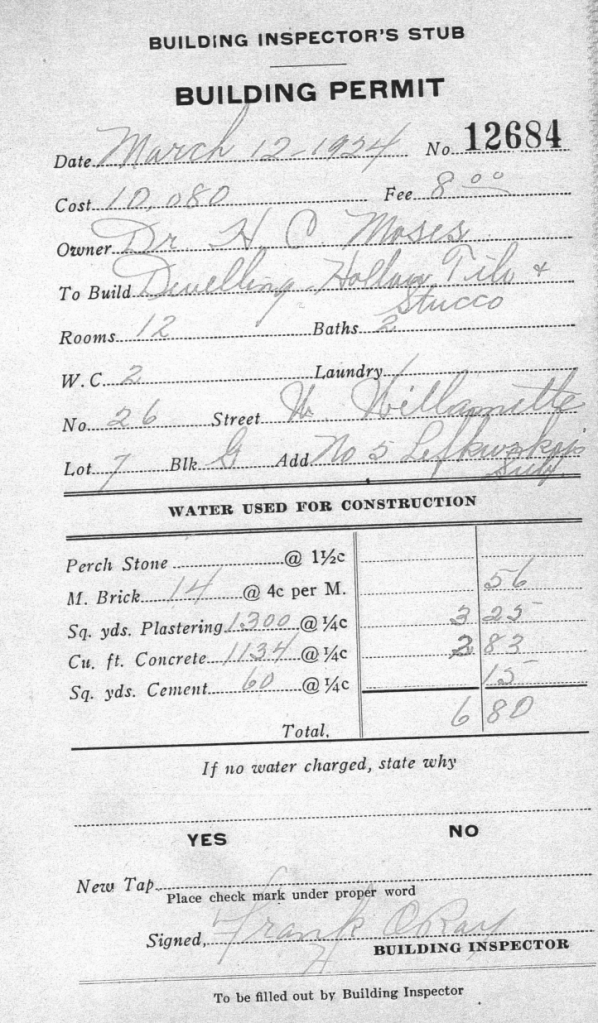 BUILDING INSPECTOR'S STUB
BUILDING PERMIT
Date March 12-1924 No. 12684
Cost 10,080 Fee 8 00
Owner Dr H. C Moses
To Build Dwelling Hollow Tile &
Stucco
Rooms 12 Baths 2
W. C 2 Laundry
No. 26 Street W. Willamette
Lot 7 Blk G Add No 5
Subf.
WATER USED FOR CONSTRUCTION
Perch Stone @ 1½c
M. Brick 14 @ 4c per M. 56
Sq. yds. Plastering 1300 @ ¼c 3 25
Cu. ft. Concrete 1134 @ ¼c 2 83
Sq. yds. Cement 60 @ ¼c 15
Total. 6 80
If no water charged, state why
YES NO
New Tap
Place check mark under proper word
Signed, Frank O Ray
BUILDING INSPECTOR
To be filled out by Building Inspector